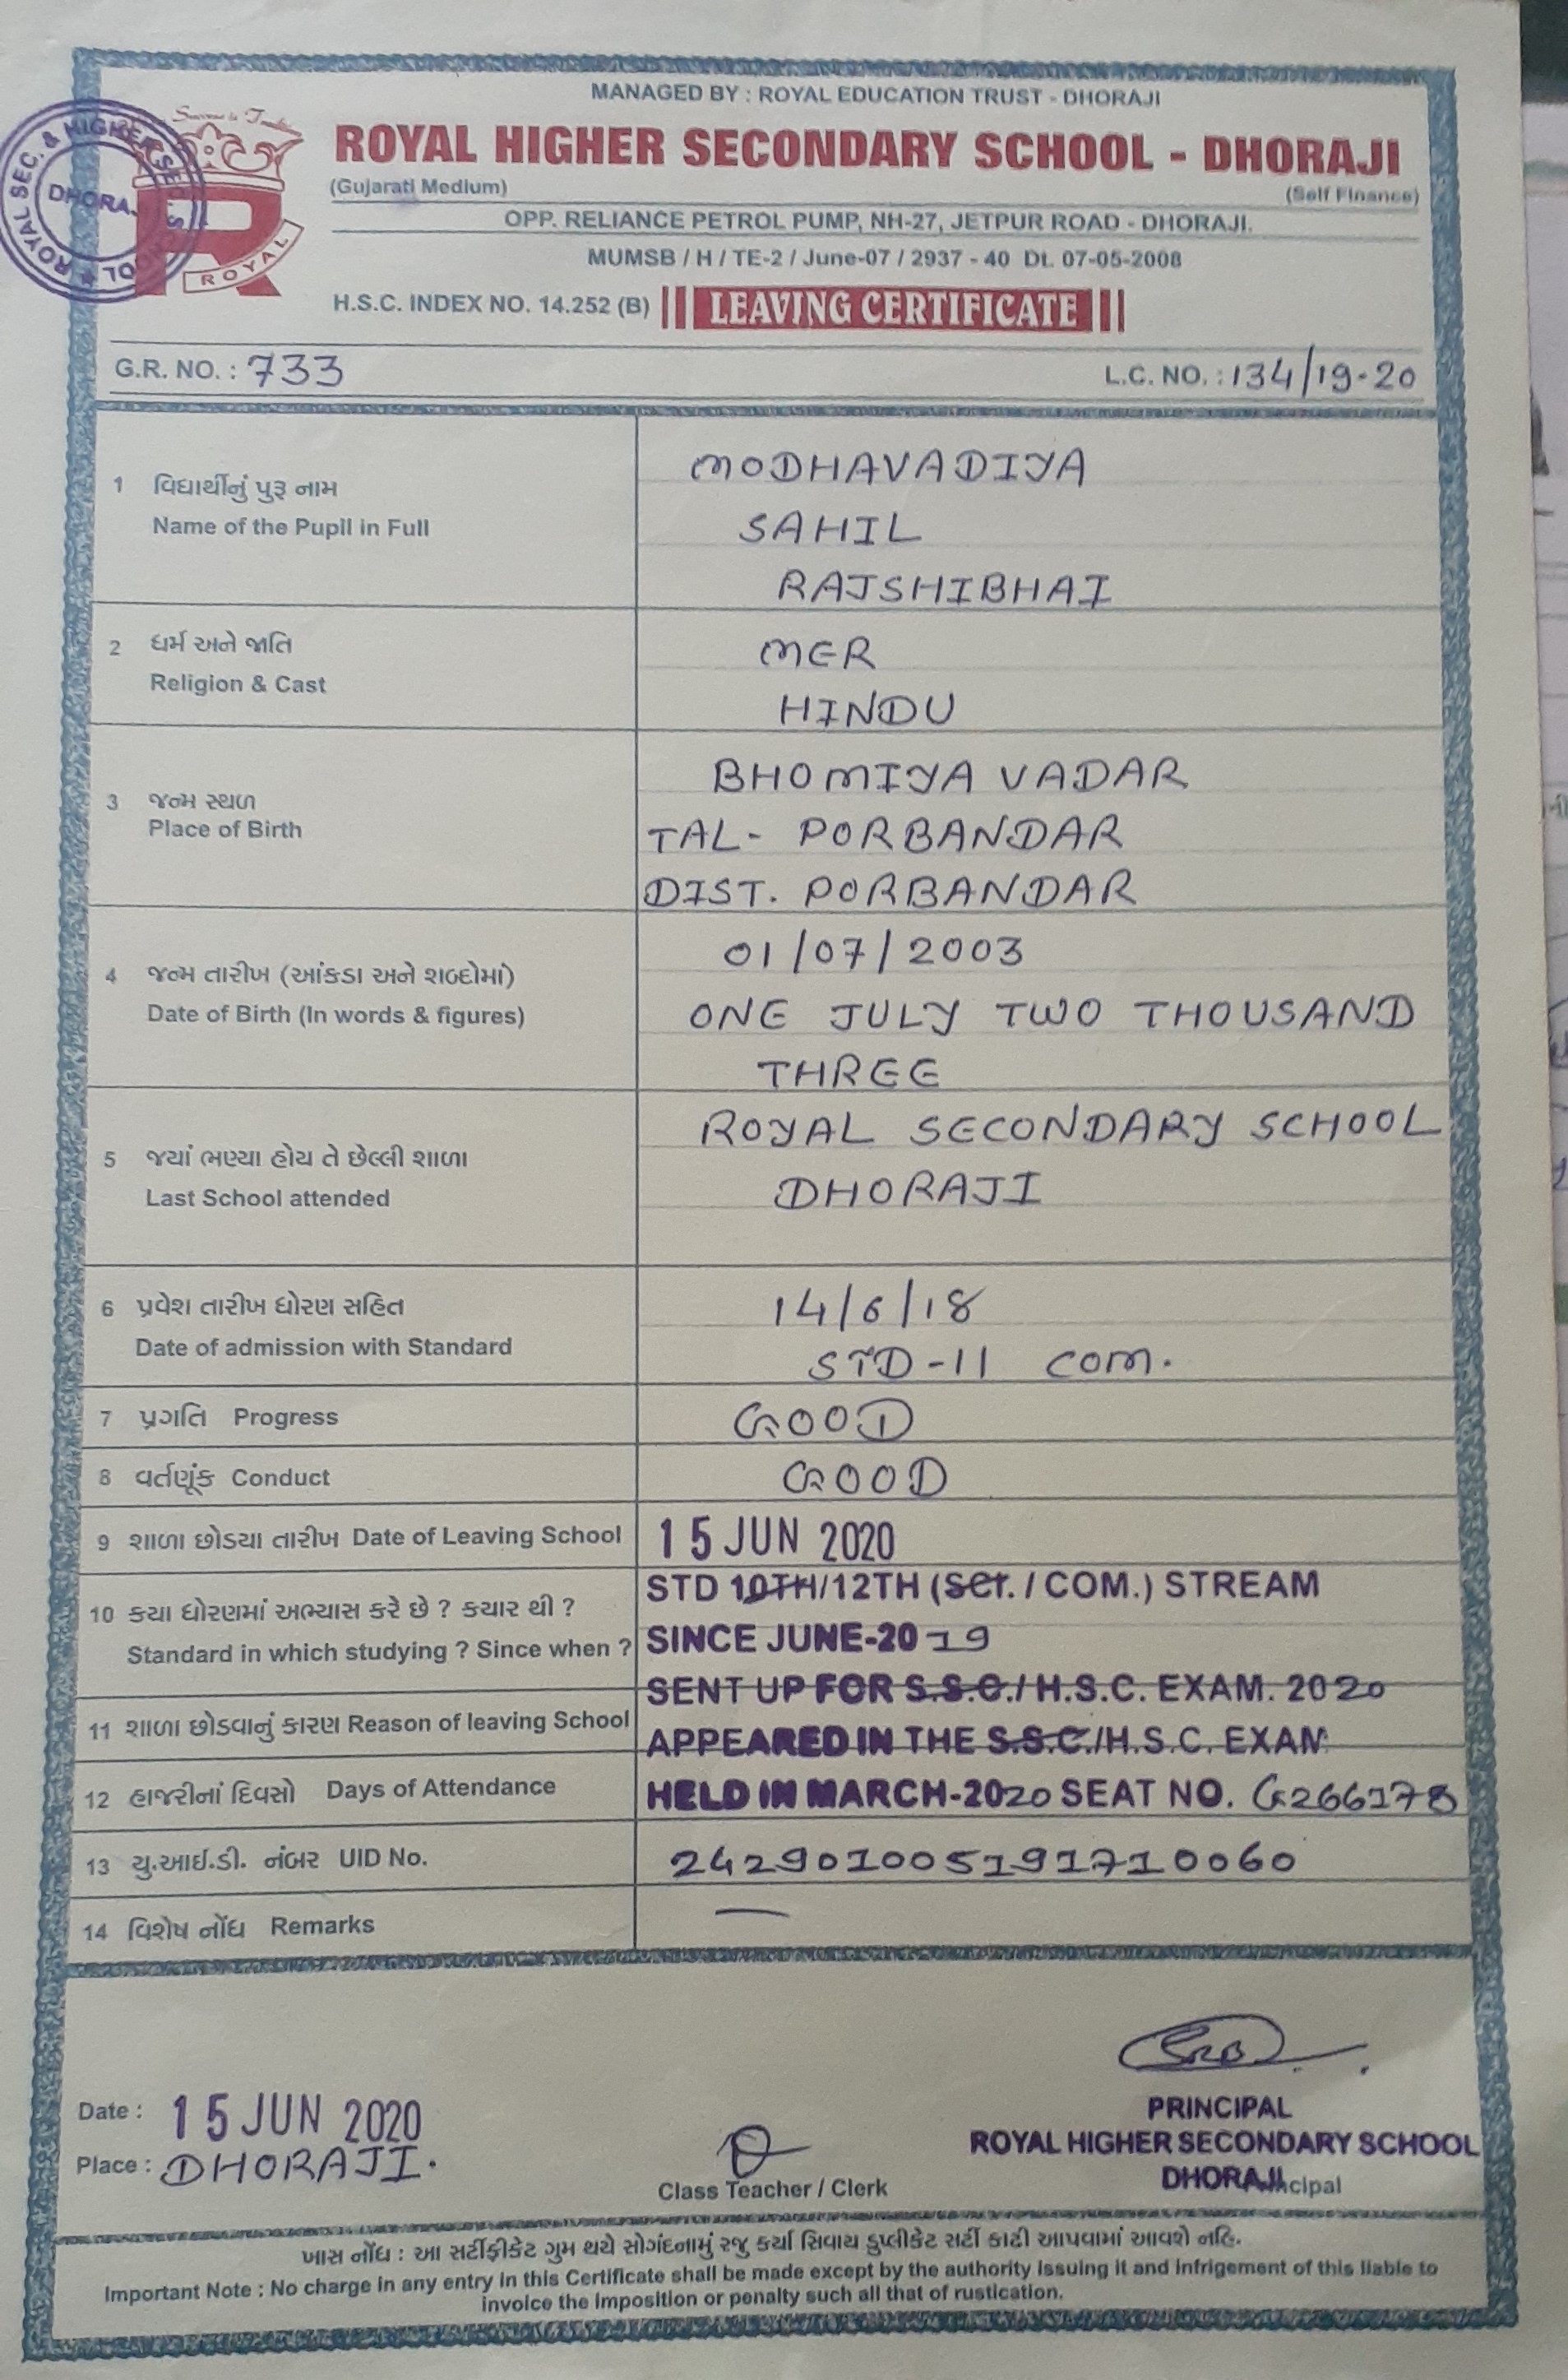 MANAGED BY : ROYAL EDUCATION TRUST - DHORAJI
ROYAL HIGHER SECONDARY SCHOOL - DHORAJI
(Gujarati Medium) (Self Finance)
OPP. RELIANCE PETROL PUMP, NH-27, JETPUR ROAD - DHORAJI.
MUMSB / H / TE-2 / June-07 / 2937 - 40 Dt. 07-05-2008
H.S.C. INDEX NO. 14.252 (B) LEAVING CERTIFICATE
ROYAL SEC. & HIGHER SEC. SCHOOL
ROYAL
G.R. NO. : 733 L.C. NO. : 134/19-20
1 વિદ્યાર્થીનું પુરૂ નામ
Name of the Pupil in Full
MODHAVADIYA
SAHIL
RAJSHIBHAI
2 ધર્મ અને જાતિ
Religion & Cast
MER
HINDU
3 જન્મ સ્થળ
Place of Birth
BHOMIYA VADAR
TAL- PORBANDAR
DIST. PORBANDAR
4 જન્મ તારીખ (આંકડા અને શબ્દોમાં)
Date of Birth (In words & figures)
01/07/2003
ONE JULY TWO THOUSAND
THREE
5 જયાં ભણ્યા હોય તે છેલ્લી શાળા
Last School attended
ROYAL SECONDARY SCHOOL
DHORAJI
6 પ્રવેશ તારીખ ધોરણ સહિત
Date of admission with Standard
14/6/18
STD-11 COM.
7 પ્રગતિ Progress GOOD
8 વર્તણૂંક Conduct GOOD
9 શાળા છોડયા તારીખ Date of Leaving School 15 JUN 2020
10 કયા ધોરણમાં અભ્યાસ કરે છે ? કયાર થી ?
Standard in which studying ? Since when ?
STD 10TH/12TH (SCI. / COM.) STREAM
SINCE JUNE-2019
SENT UP FOR S.S.C./ H.S.C. EXAM. 2020
11 શાળા છોડવાનું કારણ Reason of leaving School
APPEARED IN THE S.S.C./H.S.C. EXAM
12 હાજરીનાં દિવસો Days of Attendance
HELD IN MARCH-2020 SEAT NO. G266178
13 યુ.આઈ.ડી. નંબર UID No. 242901005191710060
14 વિશેષ નોંધ Remarks —
Date : 15 JUN 2020
Place : DHORAJI.
Class Teacher / Clerk
PRINCIPAL
ROYAL HIGHER SECONDARY SCHOOL
DHORAJI
ખાસ નોંધ : આ સર્ટીફીકેટ ગુમ થયે સોગંદનામું રજુ કર્યા સિવાય ડુપ્લીકેટ સર્ટી કાઢી આપવામાં આવશે નહિ.
Important Note : No charge in any entry in this Certificate shall be made except by the authority issuing it and infrigement of this liable to
invoice the imposition or penalty such all that of rustication.